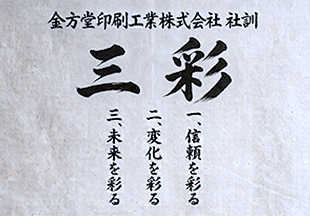 金方堂印刷工業株式会社 社訓
三彩
一、信頼を彩る
二、変化を彩る
三、未来を彩る